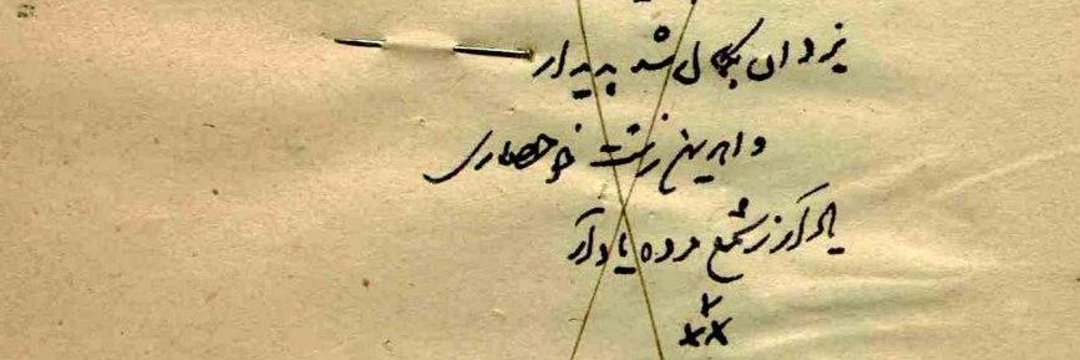 یزدان بکمال شد پدیدار
واهریمن زشتخو حصاری
یاد آر ز شمع مرده یاد آر
×××